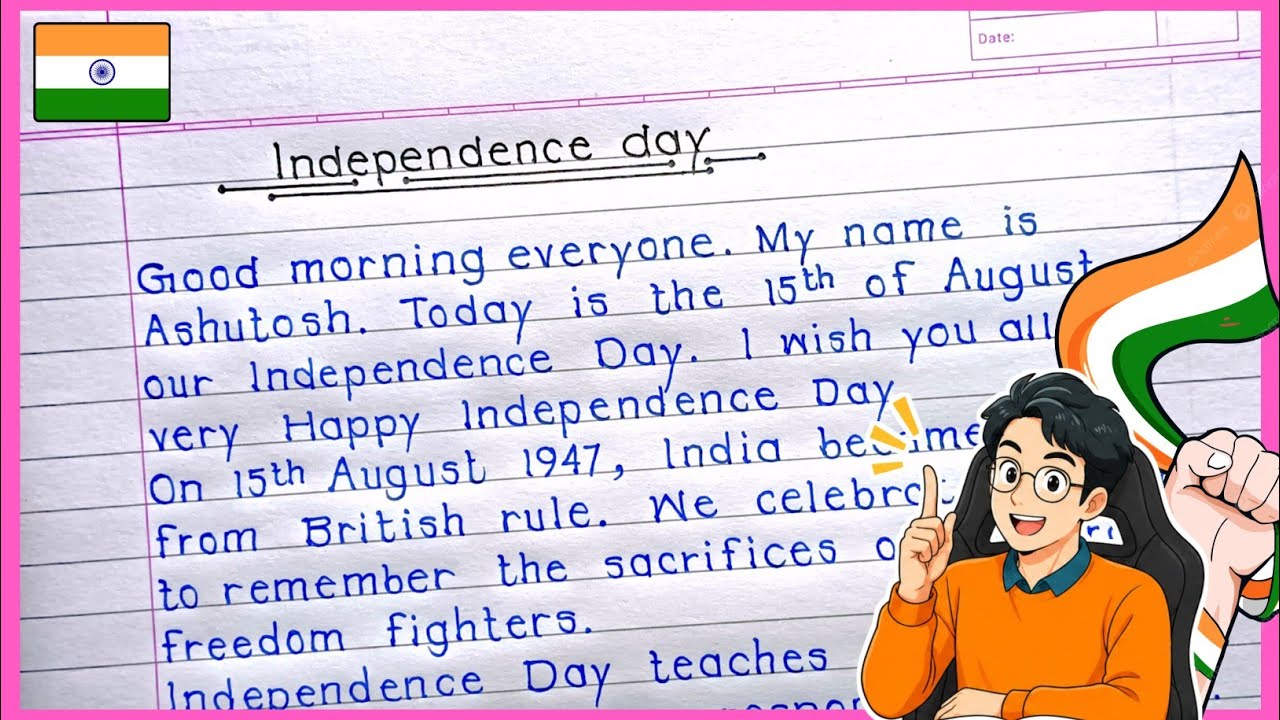 Date:
Independence day
Good morning everyone. My name is
Ashutosh. Today is the 15th of August
our Independence Day. I wish you all
very Happy Independence Day
On 15th August 1947, India became
from British rule. We
to remember the sacrifices
freedom fighters.
Independence Day teaches